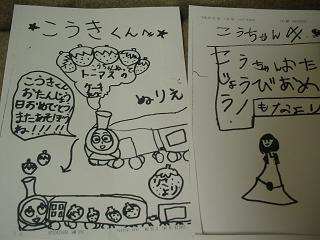 *こうきくんへ*
トーマスの
ケーキ
ぬりえ
こうきくん
おたんじょう
日おめでとう
またあそぼう
ね!!!!!
より
こうちゃんへ
こうちゃんおた
じょうびおめ
もなより